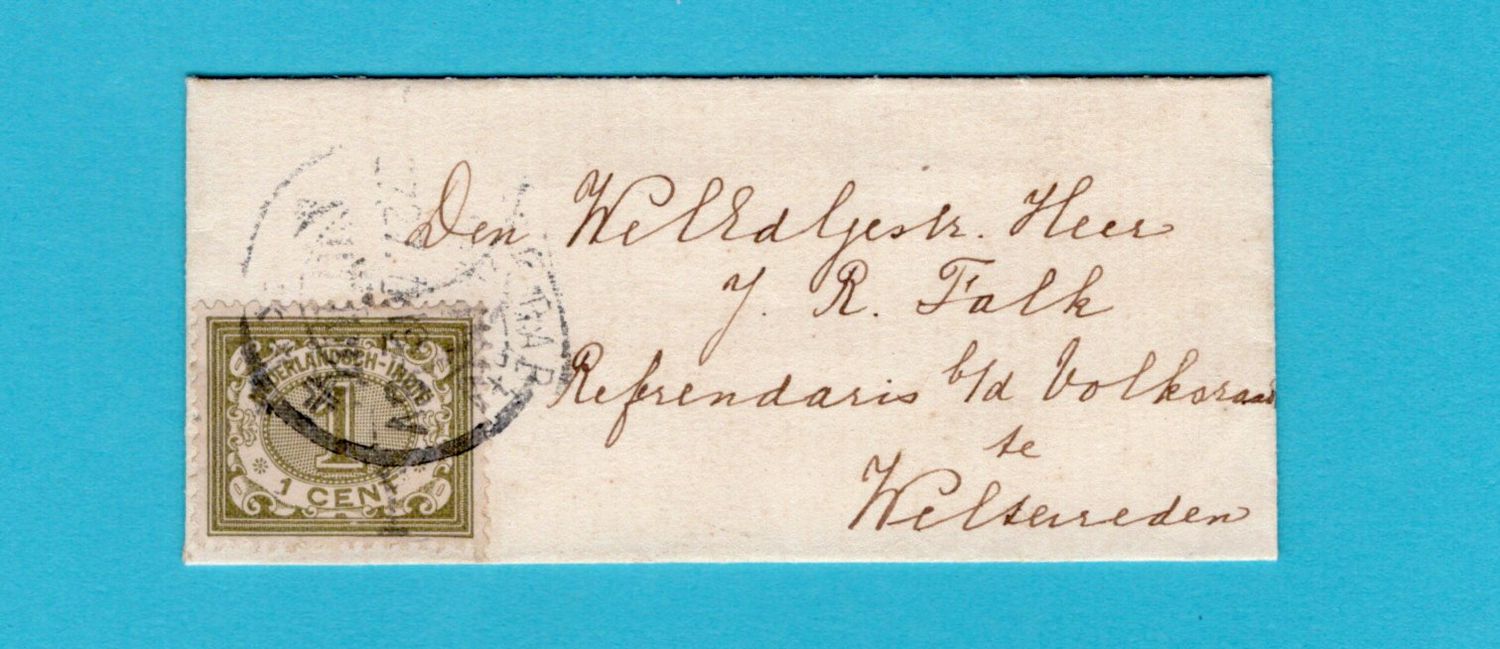 Den WelEdlgestr. Heer
J. R. Falk
Refrendaris b/d Volksraad
te
Weltevreden
NEDERLANDSCH-INDIË
1
1 CENT